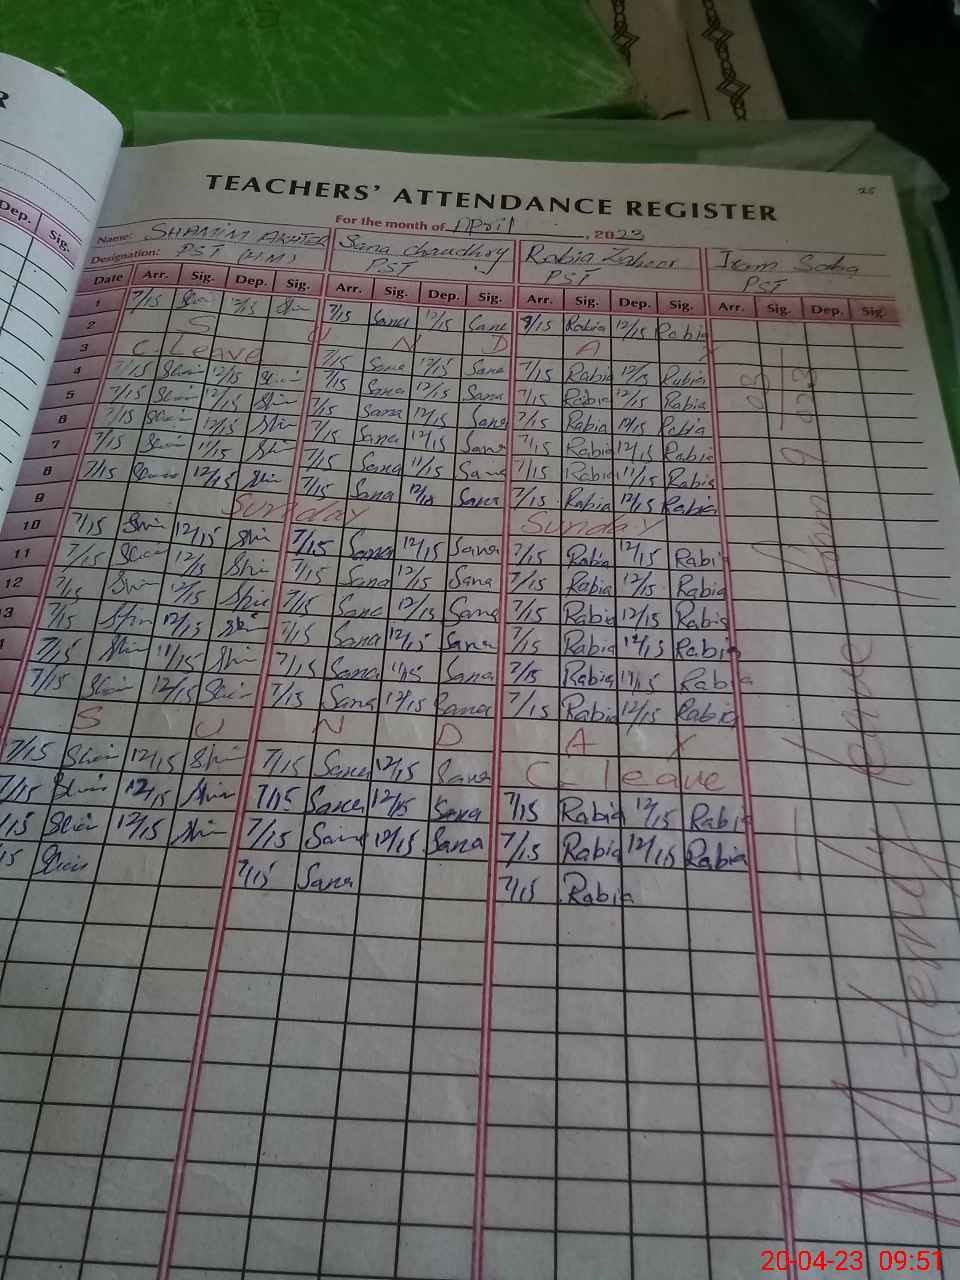 R
Dep. Sig.
25
TEACHERS' ATTENDANCE REGISTER
For the month of April, 2023
Name: SHAMIM AKHTER Sana Chaudhry Rabia Zaheer Irem Saba
Designation: PST (HM) PST PST PST
Date Arr. Sig. Dep. Sig. Arr. Sig. Dep. Sig. Arr. Sig. Dep. Sig. Arr. Sig. Dep. Sig.
1 7/15 Shm 12/15 Shm 7/15 Sana 12/15 Sana 7/15 Rabia 12/15 Rabia
2 S U N D A Y
3 C. Leave 7/15 Sana 12/15 Sana 7/15 Rabia 12/15 Rabia
4 7/15 Shm 12/15 Shm 7/15 Sana 12/15 Sana 7/15 Rabia 12/15 Rabia
5 7/15 Shm 12/15 Shm 7/15 Sana 12/15 Sana 7/15 Rabia 12/15 Rabia
6 7/15 Shm 12/15 Shm 7/15 Sana 12/15 Sana 7/15 Rabia 12/15 Rabia
7 7/15 Shm 11/15 Shm 7/15 Sana 11/15 Sana 7/15 Rabia 11/15 Rabia
8 7/15 Shm 12/15 Shm 7/15 Sana 12/15 Sana 7/15 Rabia 12/15 Rabia
9 Sunday Sunday
10 7/15 Shm 12/15 Shm 7/15 Sana 12/15 Sana 7/15 Rabia 12/15 Rabia
11 7/15 Shm 12/15 Shm 7/15 Sana 12/15 Sana 7/15 Rabia 12/15 Rabia
12 7/15 Shm 12/15 Shm 7/15 Sana 12/15 Sana 7/15 Rabia 12/15 Rabia
13 7/15 Shm 12/15 Shm 7/15 Sana 12/15 Sana 7/15 Rabia 12/15 Rabia
7/15 Shm 11/15 Shm 7/15 Sana 11/15 Sana 7/15 Rabia 11/15 Rabia
7/15 Shm 12/15 Shm 7/15 Sana 12/15 Sana 7/15 Rabia 12/15 Rabia
S U N D A Y
7/15 Shm 12/15 Shm 7/15 Sana 12/15 Sana C. leave
7/15 Shm 12/15 Shm 7/15 Sana 12/15 Sana 7/15 Rabia 12/15 Rabia
/15 Shm 12/15 Shm 7/15 Sana 12/15 Sana 7/15 Rabia 12/15 Rabia
15 Shm 7/15 Sana 7/15 Rabia
Maternity Leave from
20-04-23 09:51